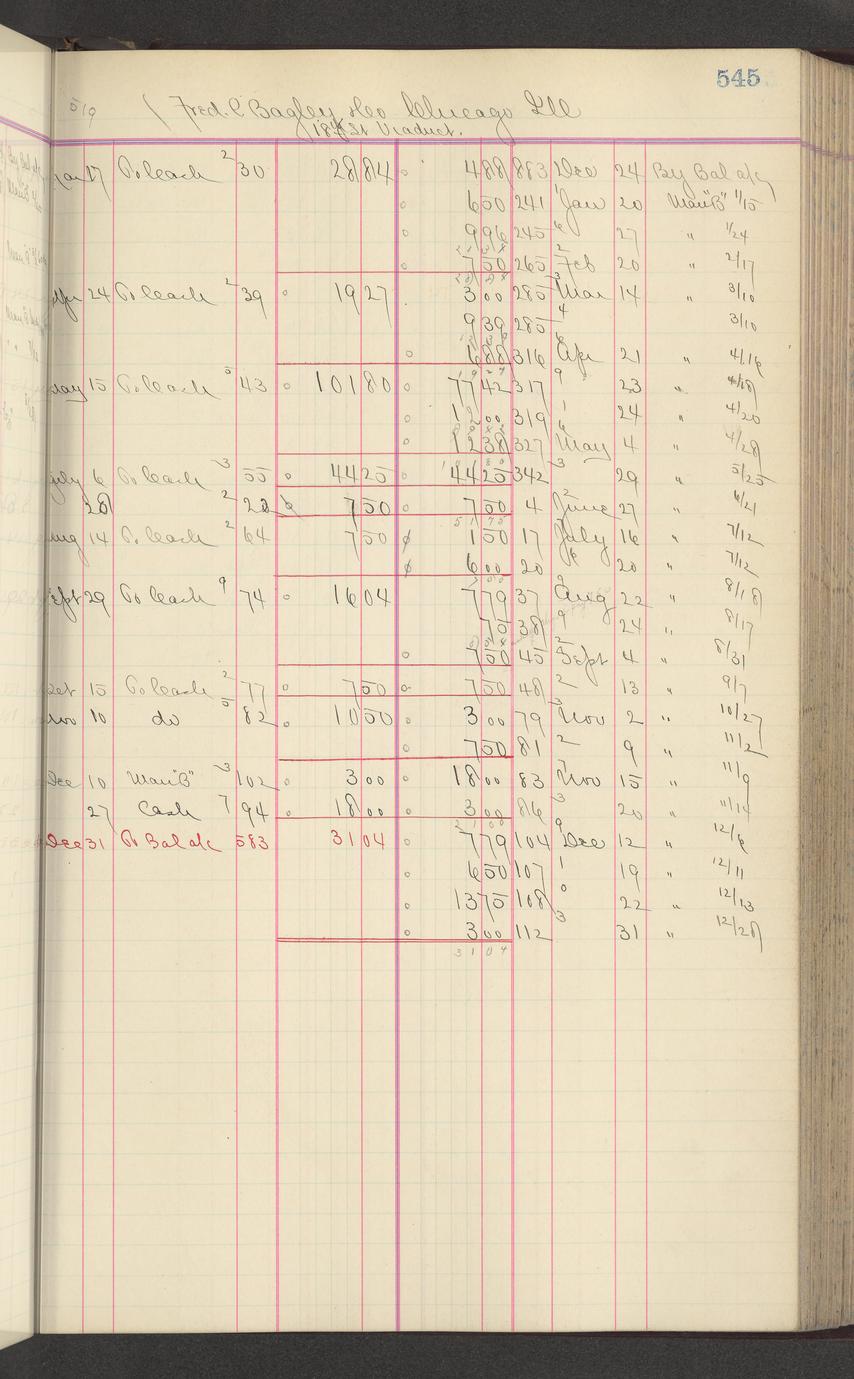 545
519 Fred. C. Bagley & Co Chicago Ill
18th St Viaduct.
17 To Cash 2 30 28 84 4 88 883 Dec 24 By Bal a/c
6 50 241 Jan 20 Man "B" 1/15
9 96 245 27 " 1/24
7 50 265 Feb 20 " 2/17
24 To Cash 2 39 19 27 3 00 285 Mar 14 " 3/10
9 39 285 4 3/10
6 88 316 Apr 21 " 4/16
May 15 To Cash 5 43 101 80 77 42 317 9 23 " 4/18
12 00 319 1 24 " 4/20
12 38 327 May 4 " 4/28
July 6 To Cash 3 55 44 25 44 25 342 3 29 " 5/25
28 2 22 7 50 7 50 4 June 27 " 6/21
Aug 14 To Cash 2 64 7 50 1 50 17 July 16 " 7/12
6 00 20 20 " 7/12
Sept 29 To Cash 9 74 16 04 7 79 37 Aug 22 " 8/18
75 38 9 24 " 8/17
7 50 45 Sept 4 " 8/31
Oct 15 To Cash 2 77 7 50 7 50 48 2 13 " 9/7
Nov 10 do 5 82 10 50 3 00 79 Nov 2 " 10/27
7 50 81 2 9 " 11/2
Dec 10 Man "B" 3 102 3 00 18 00 83 Nov 15 " 11/9
27 Cash 7 94 18 00 3 00 86 3 20 " 11/14
Dec 31 To Bal a/c 583 31 04 7 79 104 Dec 12 " 12/6
6 50 107 1 19 " 12/11
13 75 108 0 22 " 12/13
3 00 112 3 31 " 12/28
31 04